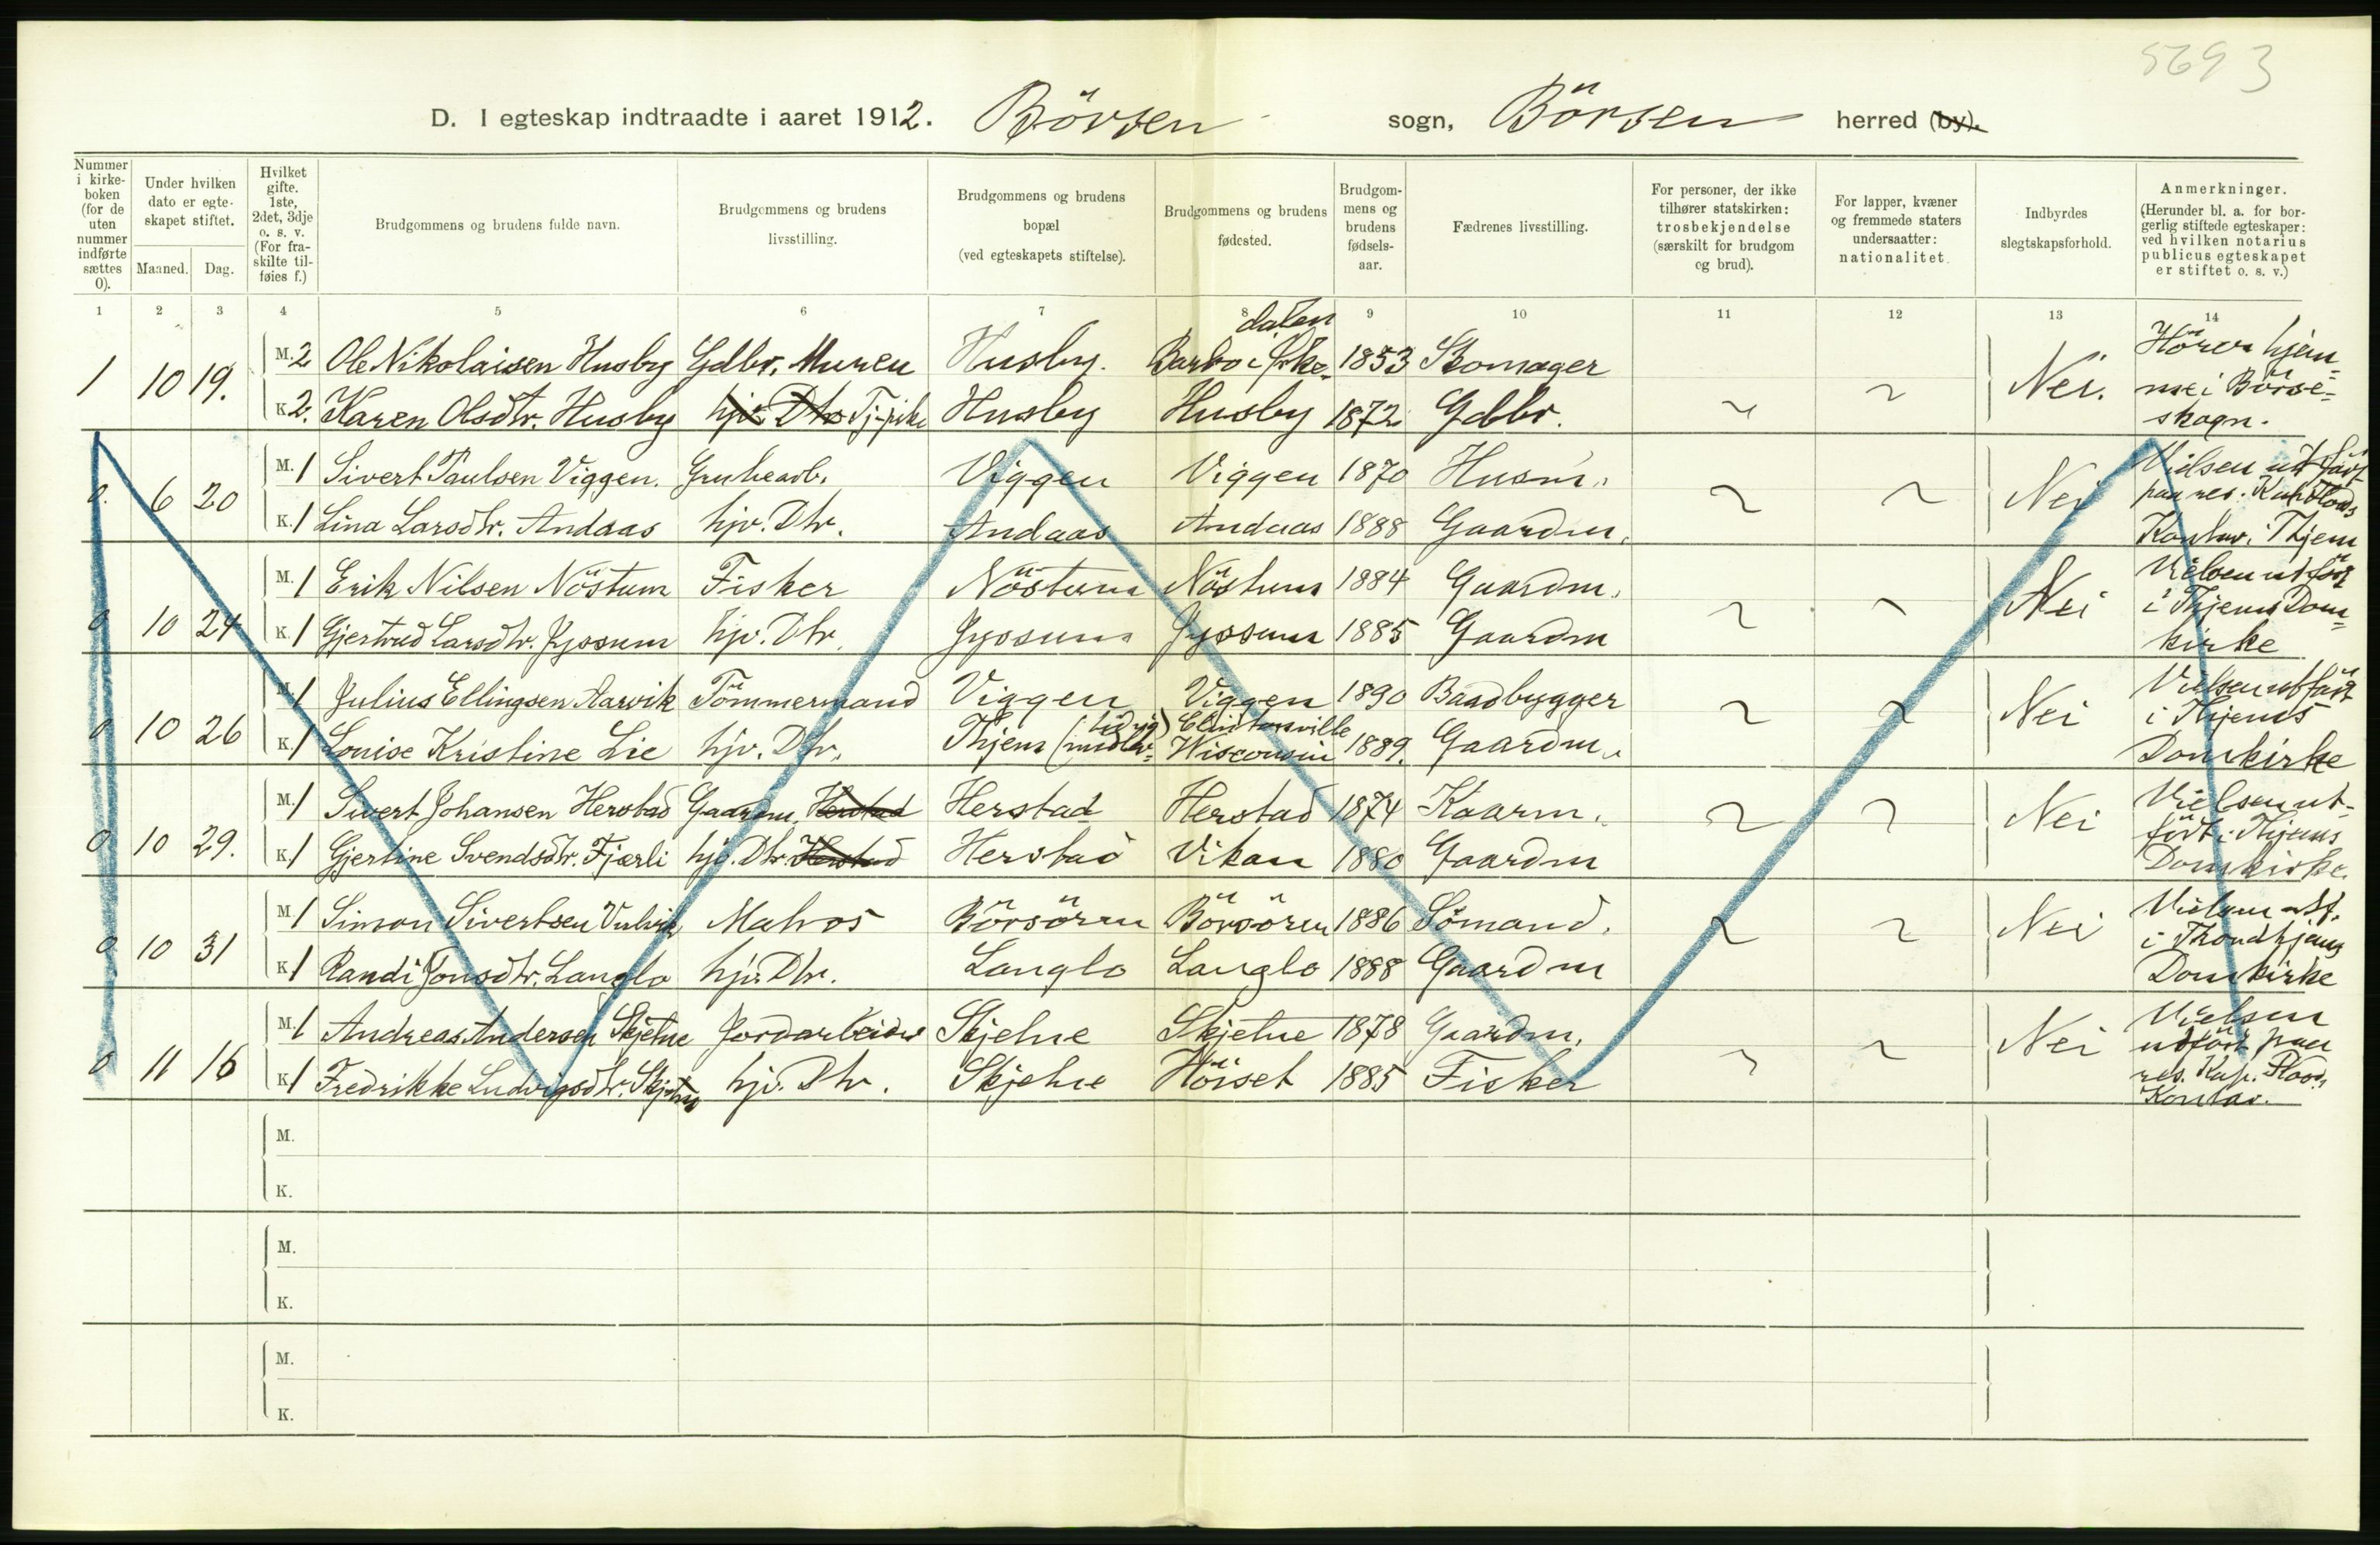 5693
D. I egteskap indtraadte i aaret 1912. Börsen sogn, Börsen herred (by).
Nummer i kirke-boken (for de uten nummer indførte sættes 0).
Under hvilken dato er egte-skapet stiftet.
Maaned. Dag.
Hvilket gifte. 1ste, 2det, 3dje o. s. v. (For fra-skilte til-føies f.)
Brudgommens og brudens fulde navn.
Brudgommens og brudens livsstilling.
Brudgommens og brudens bopæl (ved egteskapets stiftelse).
Brudgommens og brudens fødested.
Brudgom-mens og brudens fødsels-aar.
Fædrenes livsstilling.
For personer, der ikke tilhører statskirken: trosbekjendelse (særskilt for brudgom og brud).
For lapper, kvæner og fremmede staters undersaatter: nationalitet.
Indbyrdes slegtskapsforhold.
Anmerkninger. (Herunder bl. a. for bor-gerlig stiftede egteskaper: ved hvilken notarius publicus egteskapet er stiftet o. s. v.)
1 2 3 4 5 6 7 8 9 10 11 12 13 14
1 10 19. M. 2 Ole Nikolaisen Husby Gdbr. Murer Husby. Barbo Orkedalen 1853 Skomager Nei. Hører hjemme i Börseskogn.
K. 2. Karen Olsdtr. Husby hjv. Dtr Tj.pike Husby Husby 1872 Gdbr.
0. 6 20 M. 1 Sivert Paulsen Viggen. Grubearb. Viggen Viggen 1870 Husm. Nei Vielsen utført paa res. Kap. Floods Kontor i Thjem
K. 1 Lina Larsdtr. Andaas hjv. Dtr. Andaas Andaas 1888 Gaardm.
0 10 24 M. 1 Erik Nilsen Nöstum Fisker Nöstum Nöstum 1884 Gaardm. Nei Vielsen utfört i Thjems Domkirke
K. 1 Gjertrud Larsdtr. Gyssum hjv. Dtr. Gyssum Gyssum 1885 Gaardm
0 10 26 M. 1 Julius Ellingsen Aarvik Tömmermand Viggen Viggen 1890 Baadbygger Nei Vielsen utfört i Thjems Domkirke
K. 1 Louise Kristine Lie hjv. Dtr. Thjem (midler-tidig) Clintonville Wisconsin 1889. Gaardm.
0 10 29. M. 1 Sivert Johansen Herstad Gaardm. Herstad Herstad Herstad 1874 Kaarm. Nei Vielsen utfört i Thjems Domkirke.
K. 1 Gjertine Svendsdtr. Fjærli hjv. Dtr. Herstad Herstad Vikan 1880 Gaardm
0 10 31 M. 1 Simon Sivertsen Matros Börsören Börsören 1886 Sömand. Nei Vielsen utf. i Trondhjems Domkirke
K. 1 Randi Jonsdtr. Langlo hjv. Dtr. Langlo Langlo 1888 Gaardm
0 11 16 M. 1 Andreas Andersen Skjetne Jordarbeider Skjetne Skjetne 1878 Gaardm. Nei Vielsen utfört paa res. Kap. Floods Kontor.
K. 1 Fredrikke Ludvigsdtr. Skjetne hjv. Dtr. Skjetne Höiset 1885 Fisker
M.
K.
M.
K.
M.
K.